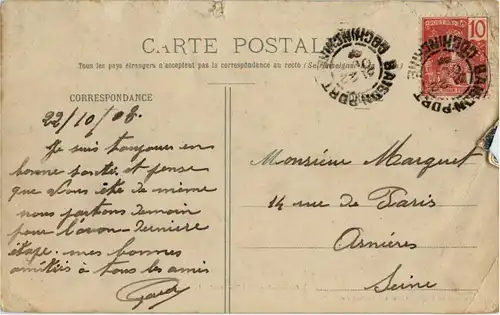 CARTE POSTALE
Tous les pays étrangers n'acceptent pas la correspondance au recto (Se renseigner
CORRESPONDANCE
22/10/08.
Je suis toujours en
bonne santé et pense
que vous ête de même
nous partons demain
pour l'avan-dernière
étape. mes bonnes
amitiés à tous les amis
Monsieur Marquet
14 rue de Paris
Asnières
Seine
SAIGON-PORT
COCHINCHINE
10
SAIGON-PORT
COCHINCHINE